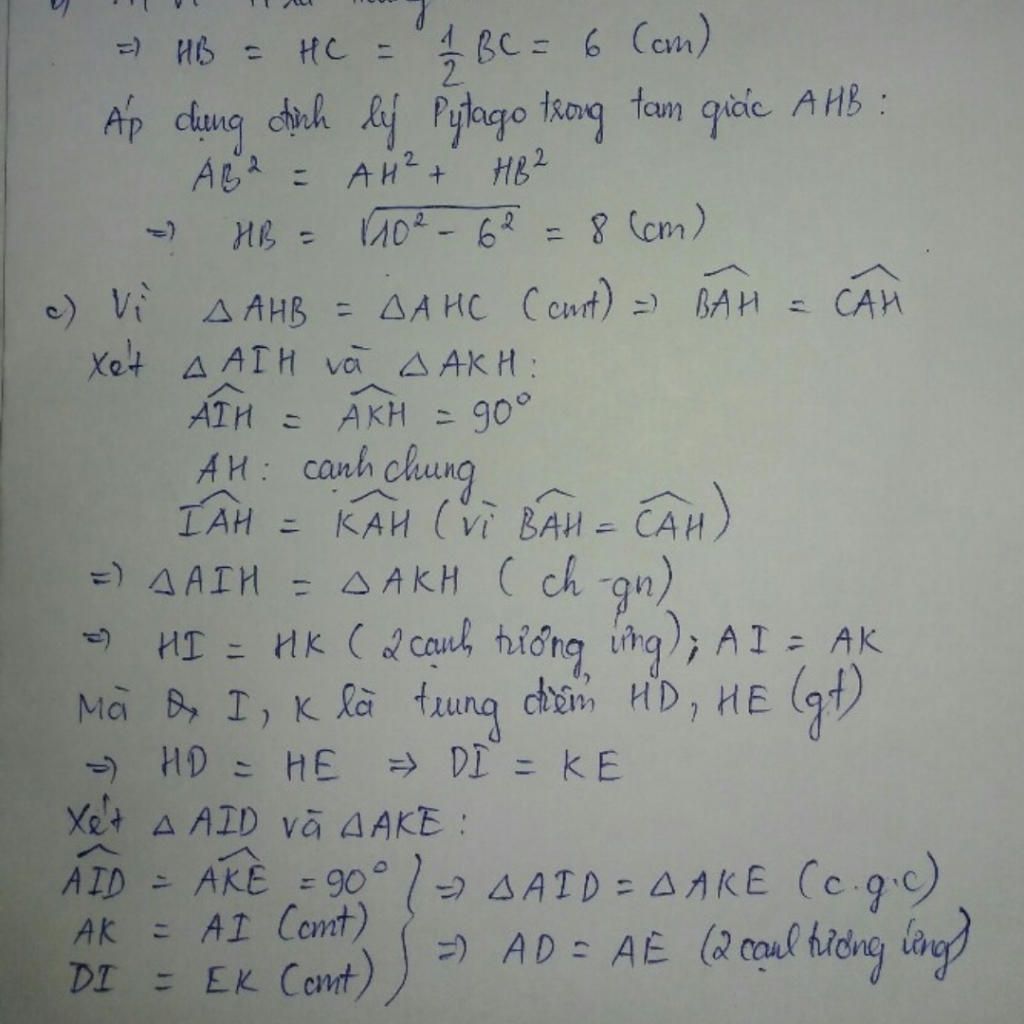 ⇒ HB = HC = 1/2 BC = 6 (cm)
Áp dụng định lý Pytago trong tam giác AHB :
AB² = AH² + HB²
⇒ HB = √10² - 6² = 8 (cm)
c) Vì △AHB = △AHC (cmt) ⇒ \widehat{BAH} = \widehat{CAH}
Xét △AIH và △AKH :
\widehat{AIH} = \widehat{AKH} = 90°
AH : cạnh chung
\widehat{IAH} = \widehat{KAH} (vì \widehat{BAH} = \widehat{CAH})
⇒ △AIH = △AKH (ch -gn)
⇒ HI = HK (2 cạnh tương ứng) ; AI = AK
Mà I, K là trung điểm HD, HE (gt)
⇒ HD = HE ⇒ DI = KE
Xét △AID và △AKE :
\widehat{AID} = \widehat{AKE} = 90° } ⇒ △AID = △AKE (c.g.c)
AK = AI (cmt)
⇒ AD = AE (2 cạnh tương ứng)
DI = EK (cmt)